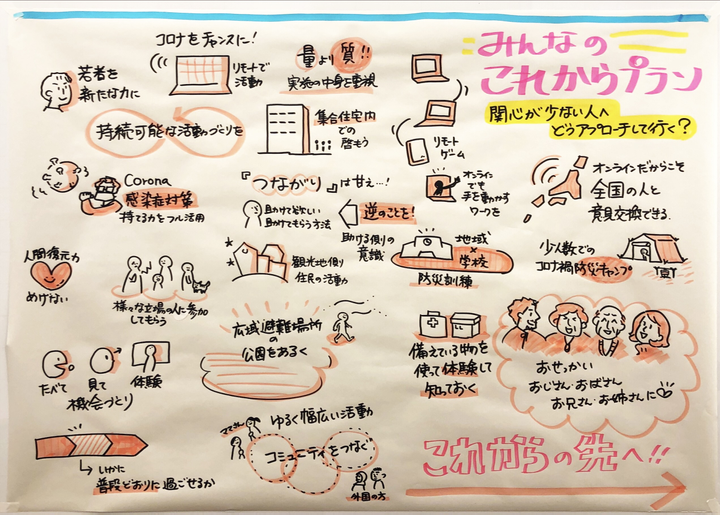 みんなの
これからプラン
関心が少ない人へ
どうアプローチして行く?
コロナをチャンスに!
リモートで
活動
量より質!!
実施の中身を重視
若者を
新たな力に
持続可能な活動づくりを
集合住宅内
での
啓もう
リモート
ゲーム
Corona
感染症対策
持てる力をフル活用
『つながり』は甘え…!
助けて欲しい
助けてもらう方法
逆のことを!
助ける側の
意識
オンライン
でも
手を動かす
ワークを
オンラインだからこそ
全国の人と
意見交換できる。
人間復元力
めげない
様々な立場の人に参加
してもらう
観光地側
住民の活動
地域
×
学校
防災訓練
少人数での
コロナ禍防災キャンプ
たべて
見て
体験
機会づくり
広域避難場所
の
公園をあるく
備えている物を
使って体験して
知っておく
おせっかい
おじさん・おばさん
お兄さん・お姉さんに
いかに
普段どおりに過ごせるか
ゆるく幅広い活動
コミュニティをつなぐ
外国の方
これからの先へ!!